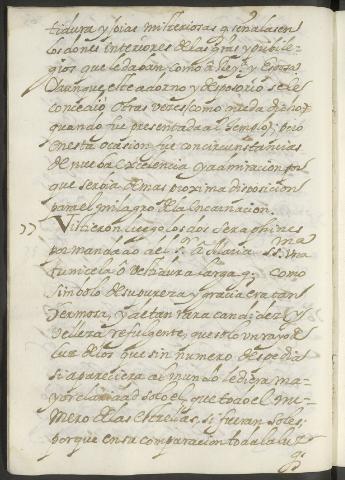 tidura y joias misteriosas q. señalasen
los dones interiores de las gras. y privile-
gios que le daban, como a Reyna y Esposa
Y aunque este adorno y desposorio se le
concedio otras veces, (como queda dicho
quando fue presentada al templo;) pero
en esta ocasion fue con circunstancias
de nueba excelencia y admiracion por
que serbia de mas proxima disposicion
para el milagro de la Encarnacion.
Vistieron luego los dos Seraphines
por mandado del Sr. a Maria SSma. una
tunicela o vestidura larga q. como
simbolo de su pureza y gracia era tan
hermosa, y de tan rara candidez y
velleza refulgente, que solo un rayo de
luz de los que sin numero despedia
si apareciera al mundo le diera ma-
yor claridad solo el, que todo el nu-
mero de las estrellas, si fueran soles;
porque en su comparacion toda la luz
q.